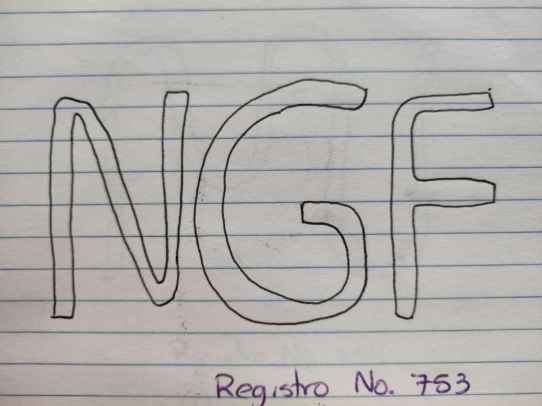 NGF
Registro No. 753